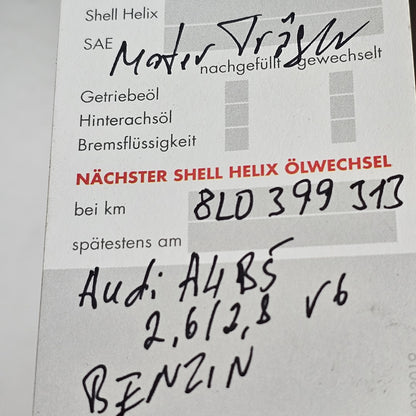 Shell Helix
SAE
Moter Träger
nachgefüllt gewechselt
Getriebeöl
Hinterachsöl
Bremsflüssigkeit
NÄCHSTER SHELL HELIX ÖLWECHSEL
bei km 8L0 399 313
spätestens am
Audi A4 B5
2,6/2,8 V6
BENZIN